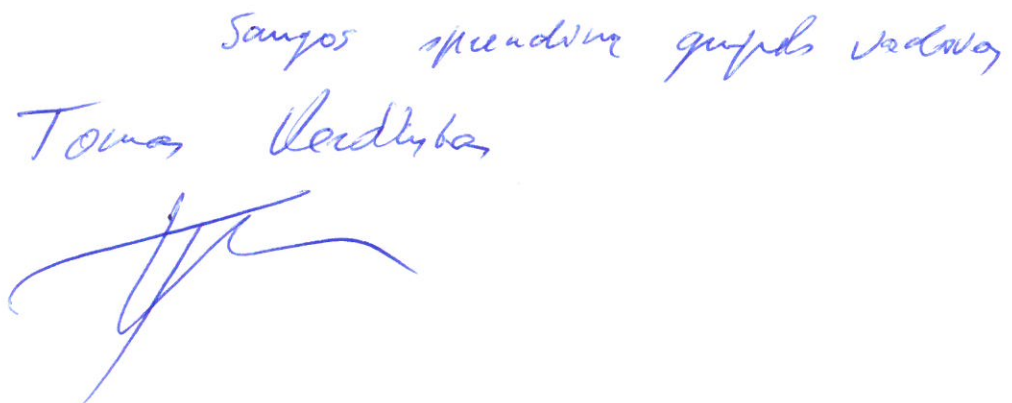 Saugos sprendimų grupės vadovas
Tomas